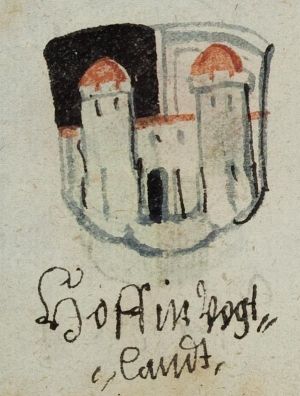 Hoff in Vogt„
„landt.